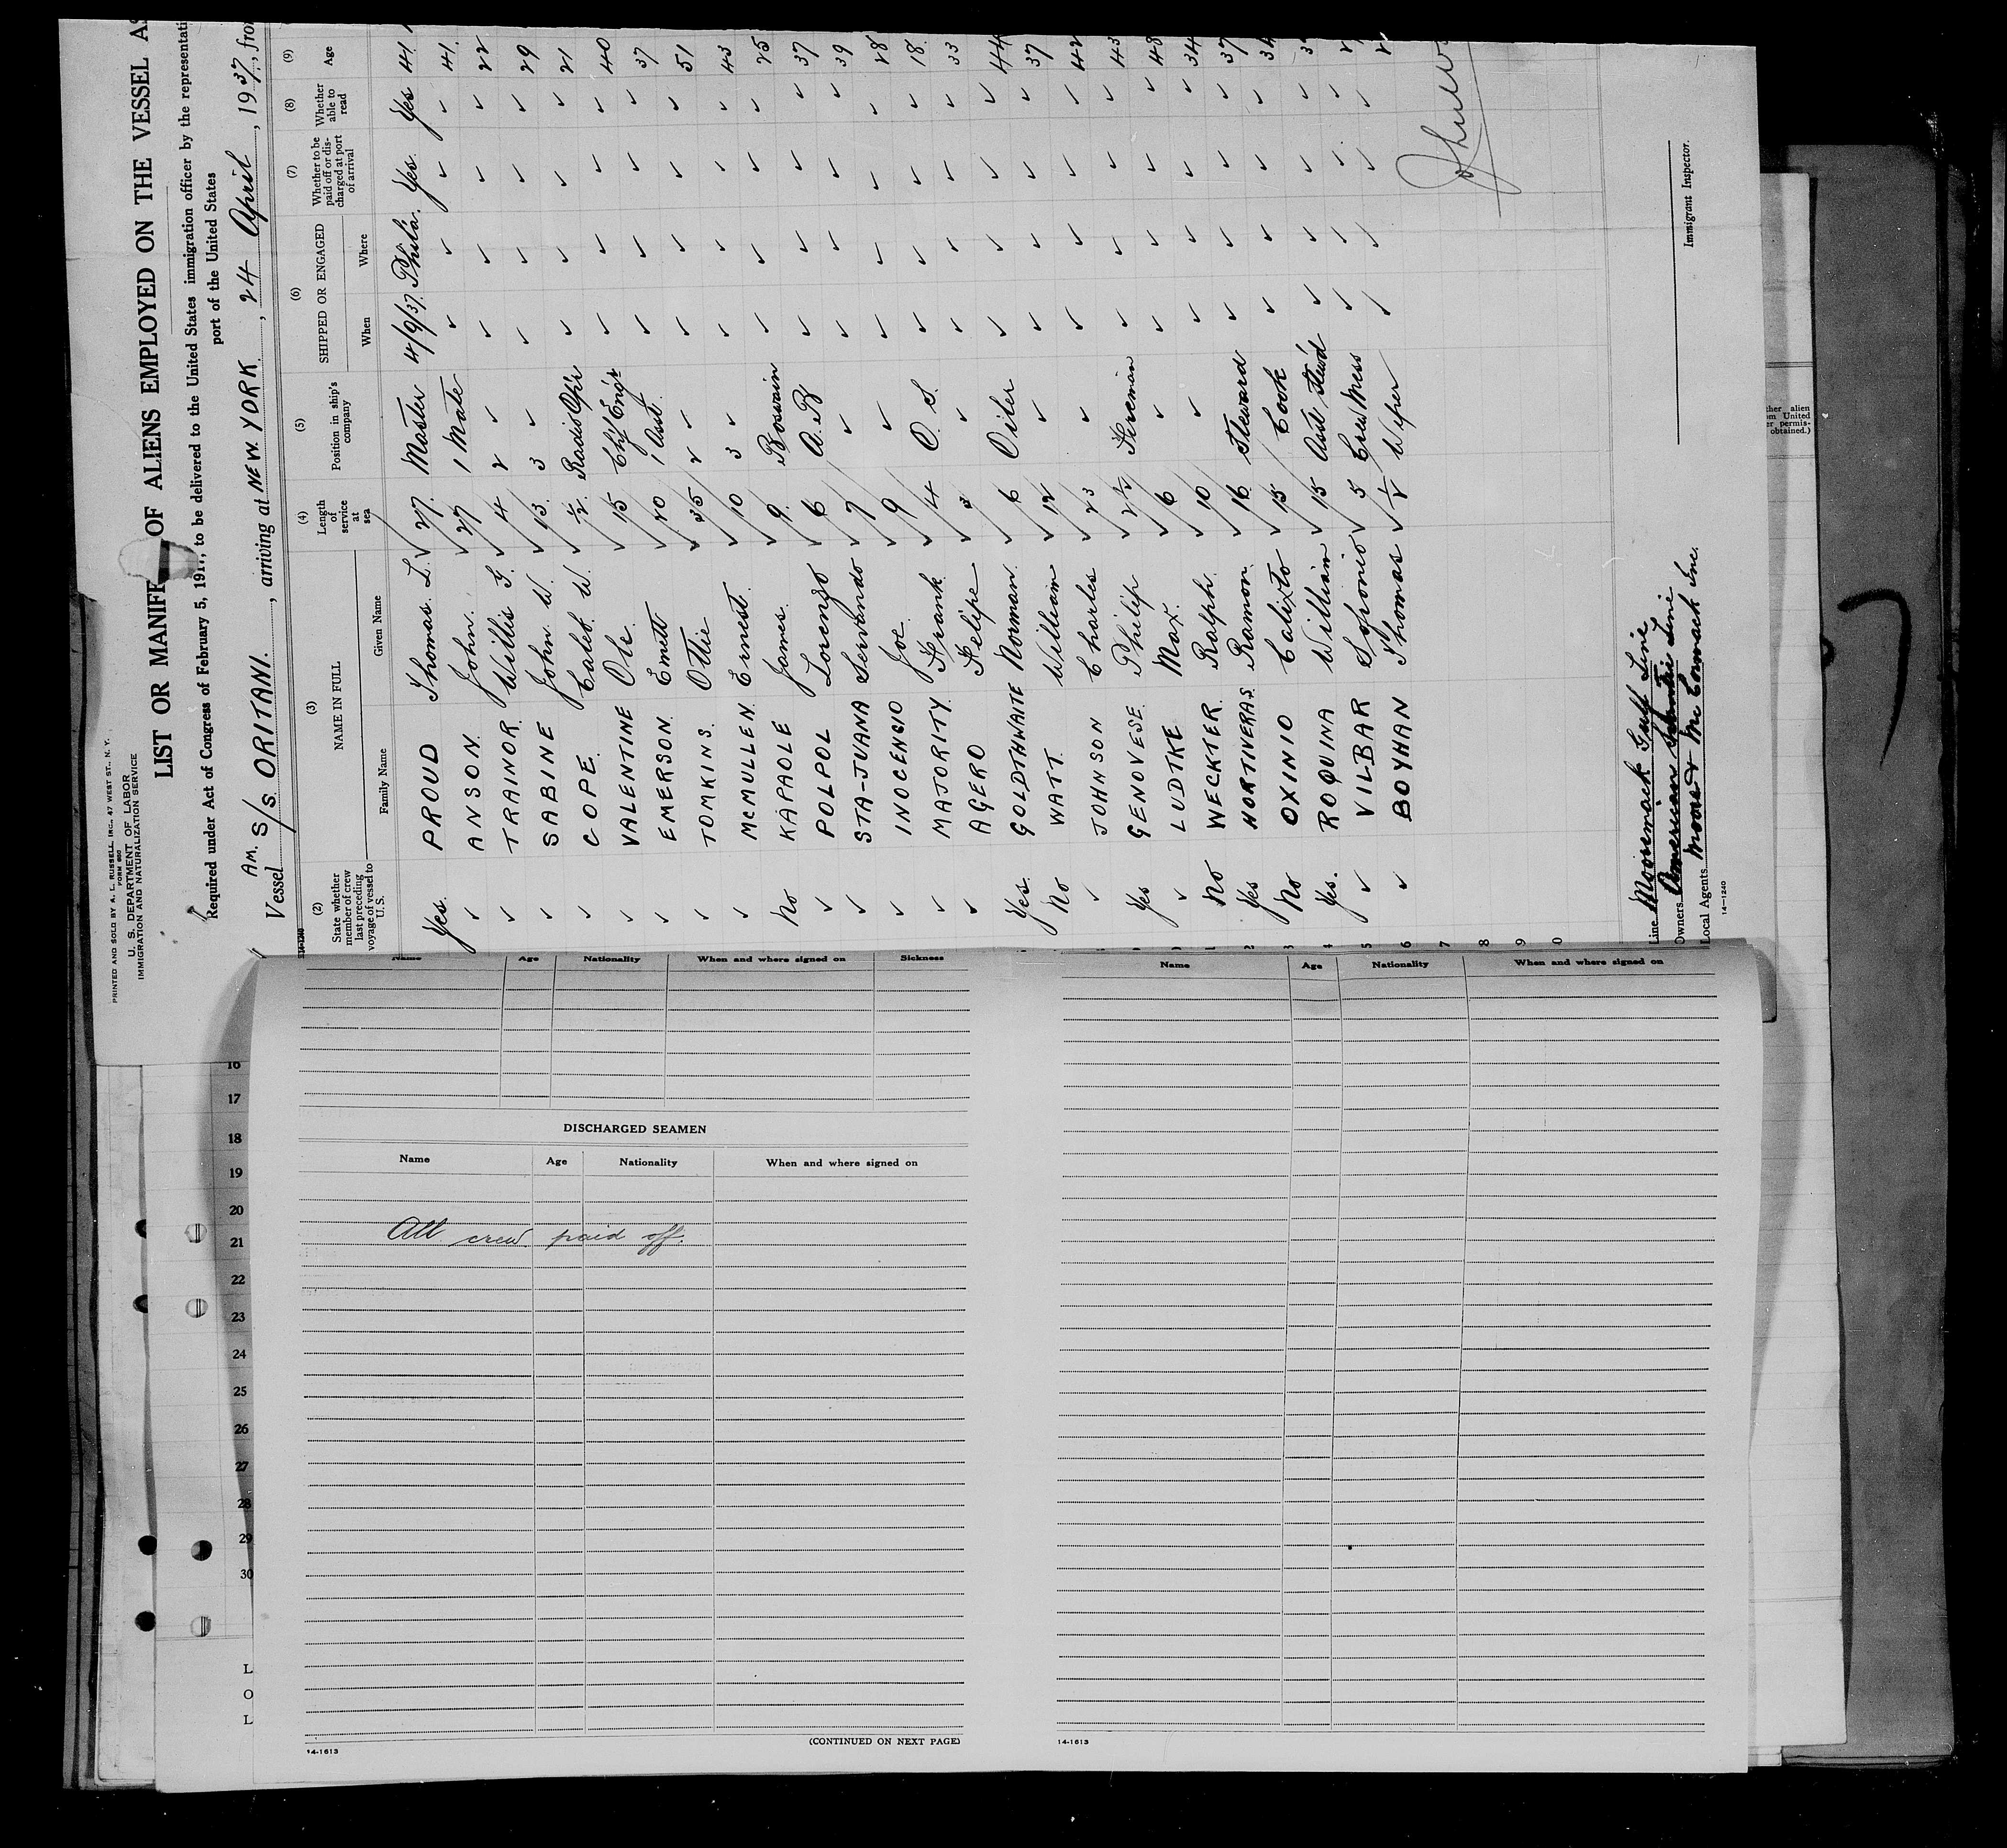 PRINTED AND SOLD BY A. L. RUSSELL, INC., 47 WEST ST., N. Y.
FORM 680
U. S. DEPARTMENT OF LABOR
IMMIGRATION AND NATURALIZATION SERVICE
LIST OR MANIFE OF ALIENS EMPLOYED ON THE VESSEL AS
Required under Act of Congress of February 5, 1917, to be delivered to the United States immigration officer by the representati
port of the United States
AM. S/S
Vessel S/S. ORITANI., arriving at NEW YORK., 24 April, 1937, fro
(2) (3) (4) (5) (6) (7) (8) (9)
State whether member of crew last preceding voyage of vessel to U.S.
NAME IN FULL
Family Name Given Name
Length of service at sea
Position in ship's company
SHIPPED OR ENGAGED
When Where
Whether to be paid off or discharged at port of arrival
Whether able to read
Age
Yes. PROUD Thomas. L. ✓ 27. Master 4/9/37. Phila. Yes. Yes 41
✓ ANSON. John. ✓ 27 1 Mate ✓ ✓ ✓ ✓ 41.
✓ TRAINOR. Willis G. ✓ 4 2 ✓ ✓ ✓ ✓ ✓ 22
✓ SABINE John W. ✓ 13. 3 ✓ ✓ ✓ ✓ ✓ 29
✓ COPE. Caleb W. ✓ 1/2. Radio Op'r ✓ ✓ ✓ ✓ 21
✓ VALENTINE Ole. ✓ 15 Chf Eng'r ✓ ✓ ✓ ✓ 40
✓ EMERSON. Emett ✓ 20 1 Asst. ✓ ✓ ✓ ✓ 37
✓ TOMKINS. Ottie ✓ 35 2 ✓ ✓ ✓ ✓ ✓ 51
✓ McMULLEN. Ernest. ✓ 10 3 ✓ ✓ ✓ ✓ ✓ 43
No KAPAOLE James. ✓ 9. Boswain ✓ ✓ ✓ ✓ 25
✓ POLPOL Lorenzo ✓ 6 A. B ✓ ✓ ✓ ✓ 37
✓ STA-JUANA Servando ✓ 7 ✓ ✓ ✓ ✓ ✓ 39
✓ INOCENCIO Joe. ✓ 9 ✓ ✓ ✓ ✓ ✓ 28
✓ MAJORITY. Frank. ✓ 4 O. S. ✓ ✓ ✓ ✓ 18.
✓ AGERO Felipe ✓ 3 ✓ ✓ ✓ ✓ ✓ 33
Yes. GOLDTHWAITE Norman. ✓ 6 Oiler ✓ ✓ ✓ ✓ 44
No WATT. William ✓ 12 ✓ ✓ ✓ ✓ ✓ 37
✓ JOHNSON Charles ✓ 23 ✓ ✓ ✓ ✓ ✓ 42
Yes GENOVESE. Philip ✓ 2 1/2 Fireman ✓ ✓ ✓ ✓ 43
✓ LUDTKE Max. ✓ 6 ✓ ✓ ✓ ✓ ✓ 48
No WECKTER. Ralph. ✓ 10 ✓ ✓ ✓ ✓ ✓ 34
Yes HORTIVERAS. Ramon. ✓ 16 Steward ✓ ✓ ✓ ✓ 37
No OXINIO Calixto ✓ 15 Cook ✓ ✓ ✓ ✓ 34
Yes. ROQUINA William ✓ 15 Asst Stew'd ✓ ✓ ✓ ✓
✓ VILBAR Sofronio ✓ 5 Crew Mess ✓ ✓ ✓ ✓
✓ BOYHAN Thomas ✓ 1/2 Wiper ✓ ✓ ✓ ✓
Line Moormack Gulf Line
Owners American Line
Local Agents. Moore & McCormack Inc.
14-1240
Immigrant Inspector.
Name Age Nationality When and where signed on Sickness
DISCHARGED SEAMEN
Name Age Nationality When and where signed on
All crew paid off.
(CONTINUED ON NEXT PAGE)
14-1613
Name Age Nationality When and where signed on
14-1613
16
17
18
19
20
21
22
23
24
25
26
27
28
29
30
L
O
L
ther alien
om United
er permis-
obtained.)